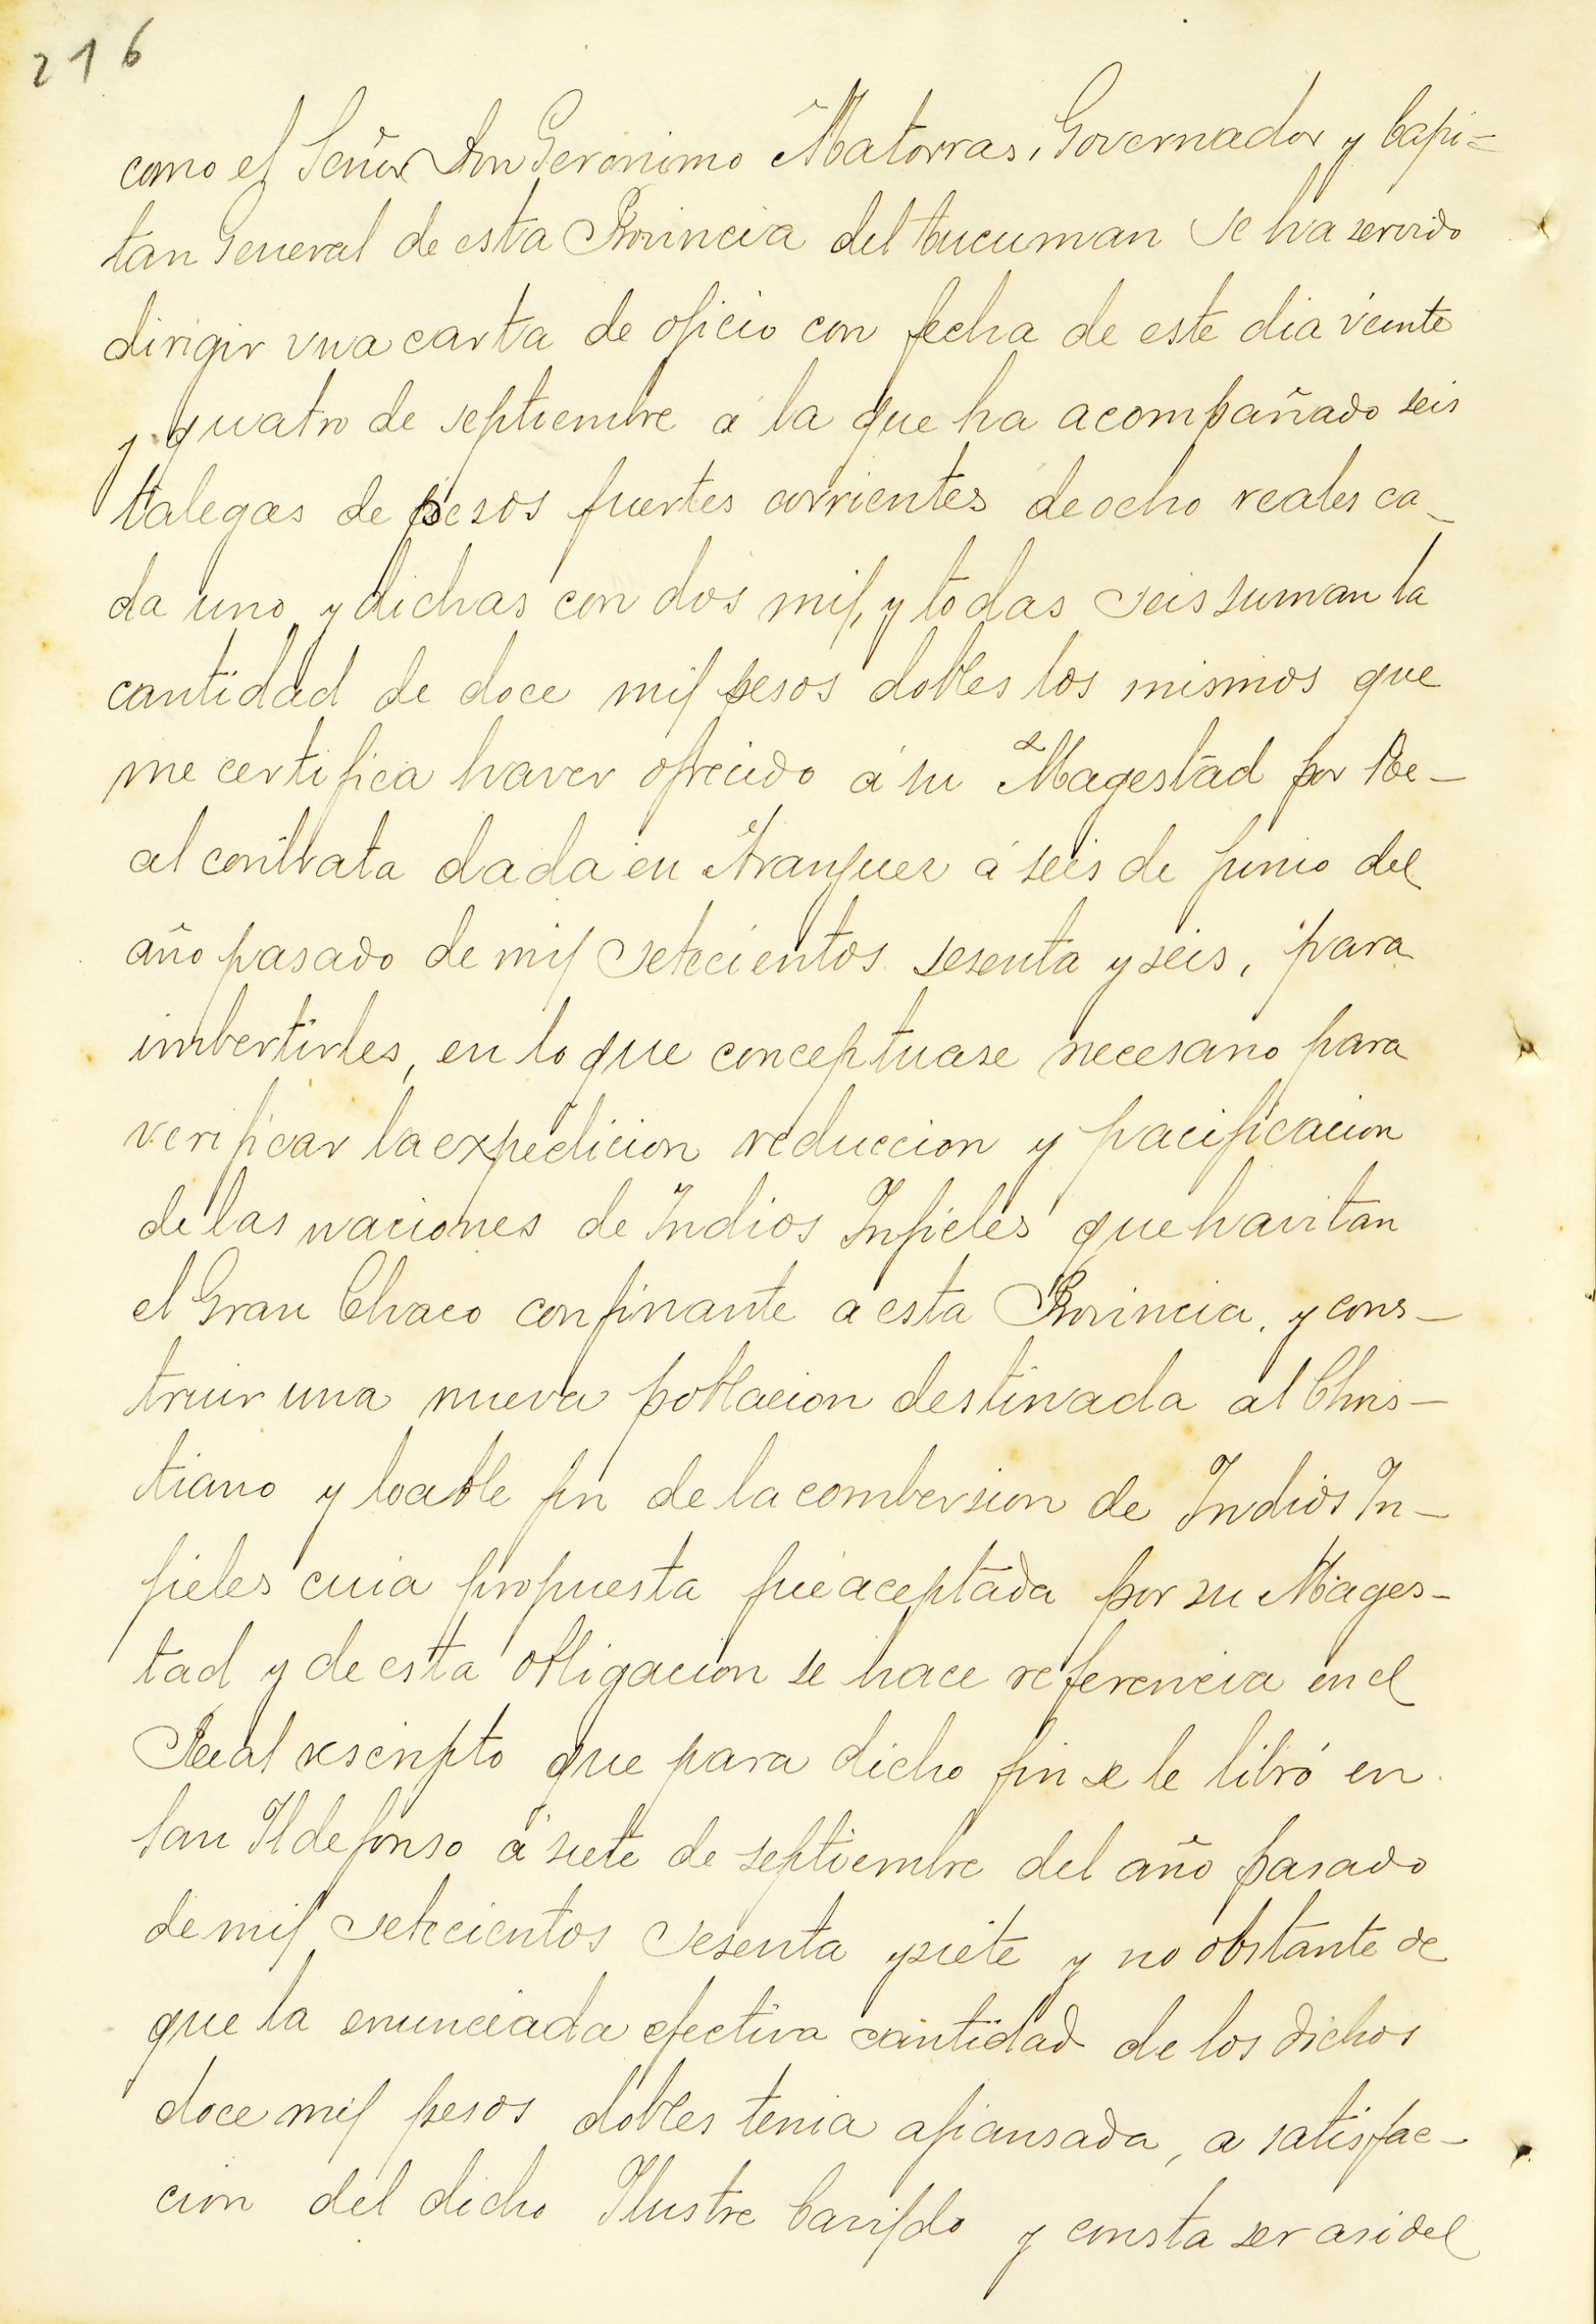 216
como el Señor Don Geronimo Matorras, Governador y Capi=
tan General de esta Provincia del tucuman se ha servido
dirigir vna carta de oficio con fecha de este dia veinte
y quatro de septiembre á la que ha acompañado seis
talegas de pesos fuertes corrientes de ocho reales ca_
da uno y dichas con dos mil, y todas seis suman la
cantidad de doce mil pesos dobles los mismos que
me certifica haver ofrecido á su Magestad por Re_
al contrata dada en Aranjuez á seis de junio del
año pasado de mil setecientos sesenta y seis, para
imbertirles, en lo que conceptuase necesario para
verificar la expedicion reduccion y pacificacion
de las naciones de Indios Infieles que havitan
el Gran Chaco confinante a esta Provincia, y cons_
truir una nueva poblacion destinada al Chris_
tiano y loable fin de la combersion de Indios In_
fieles cuia propuesta fué aceptada por su Mages_
tad y de esta obligacion se hace referencia en el
Real rescripto que para dicho fin se le libró en
San Ildefonso á siete de septiembre del año pasado
de mil setecientos sesenta y siete y no obstante de
que la enunciada efectiva cantidad de los dichos
doce mil pesos dobles tenia afiansada, a satisfac_
cion del dicho Ilustre Cavildo y consta ser asi del